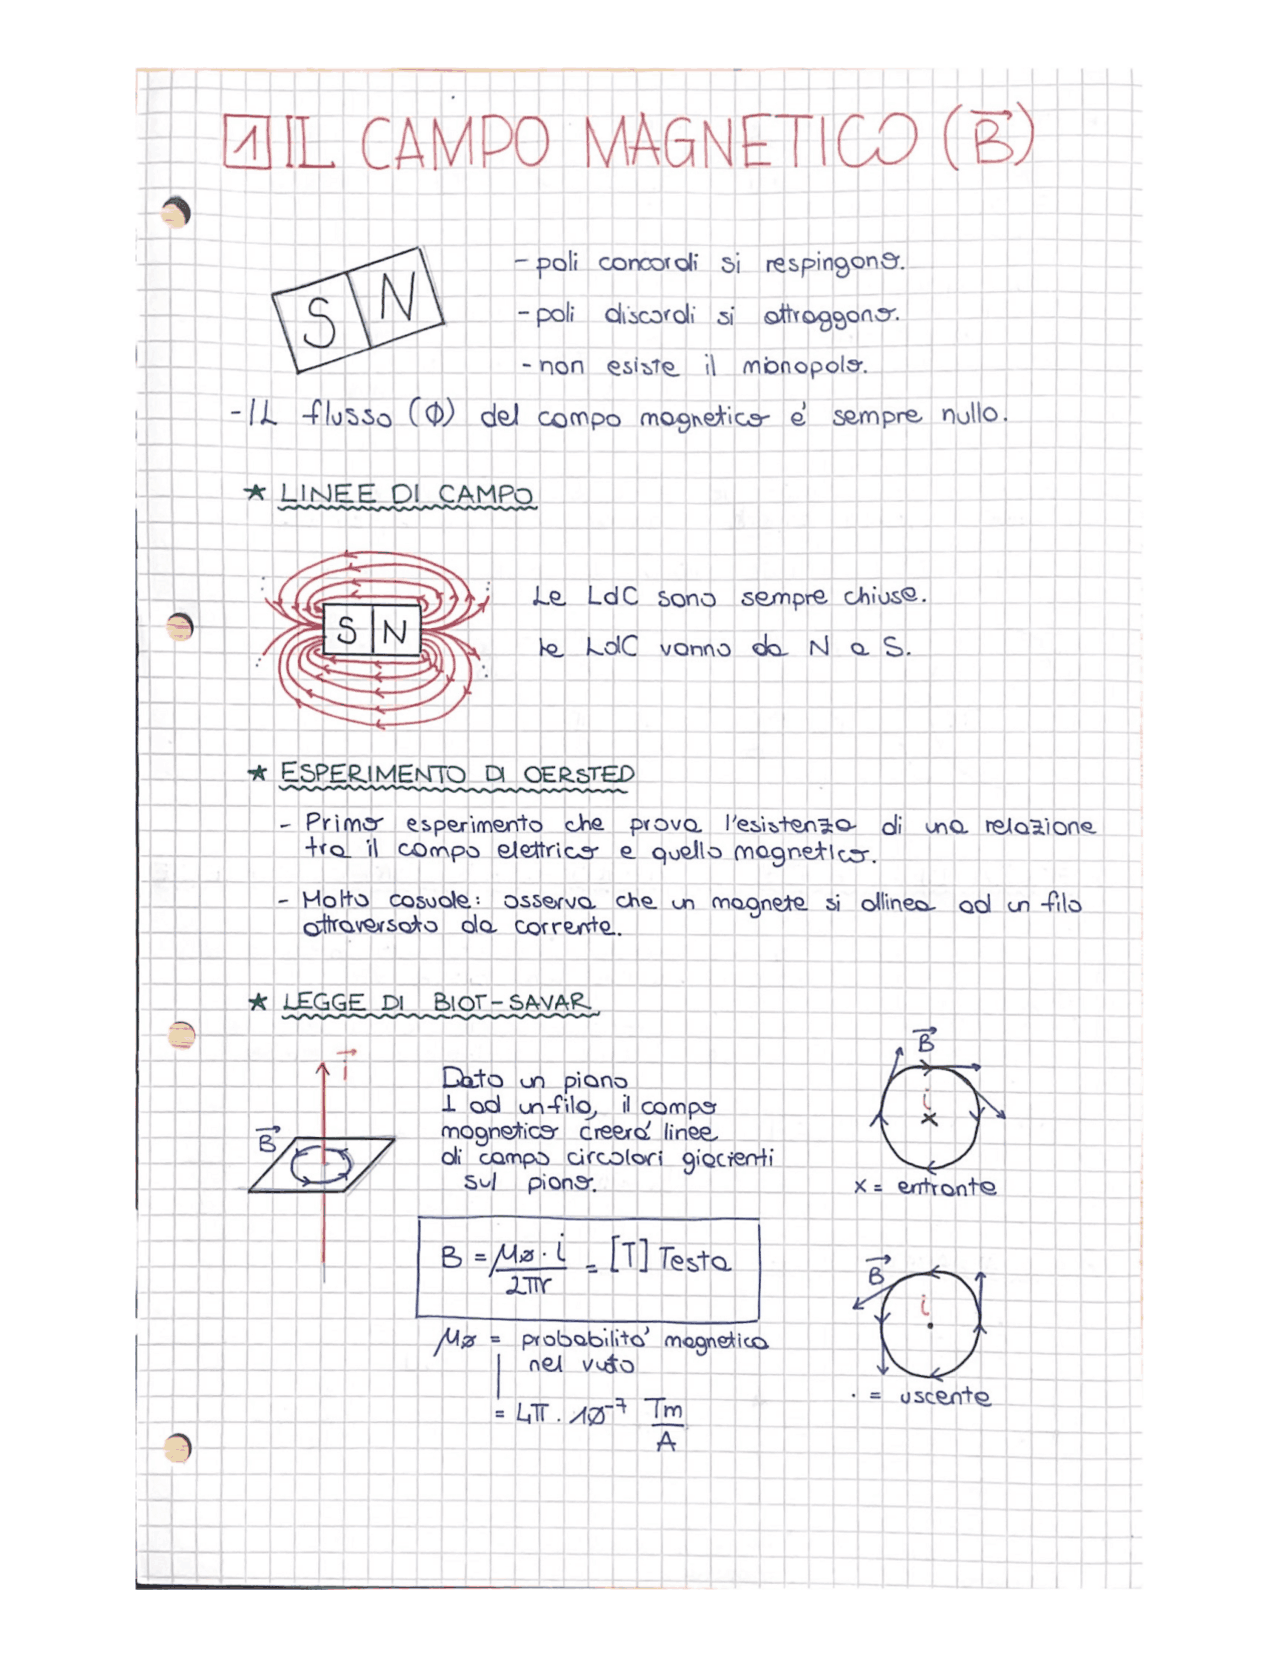 1 IL CAMPO MAGNETICO (B)
S N
- poli concordi si respingono.
- poli discordi si attraggono.
- non esiste il monopolo.
- IL flusso (Φ) del campo magnetico e' sempre nullo.
★ LINEE DI CAMPO
S N
Le LdC sono sempre chiuse.
Le LdC vanno da N a S.
★ ESPERIMENTO DI OERSTED
- Primo esperimento che prova l'esistenza di una relazione
tra il campo elettrico e quello magnetico.
- Molto casuale: osserva che un magnete si allinea ad un filo
attraversato da corrente.
★ LEGGE DI BIOT-SAVAR
i
B
Dato un piano
⊥ ad un filo, il campo
magnetico creera' linee
di campo circolari giacienti
sul piano.
B
i
x
x = entrante
B = μ0 · i / 2πr = [T] Testa
B
i
·
· = uscente
μ0 = probabilita' magnetica
nel vuto
= 4π · 10⁻⁷ Tm/A